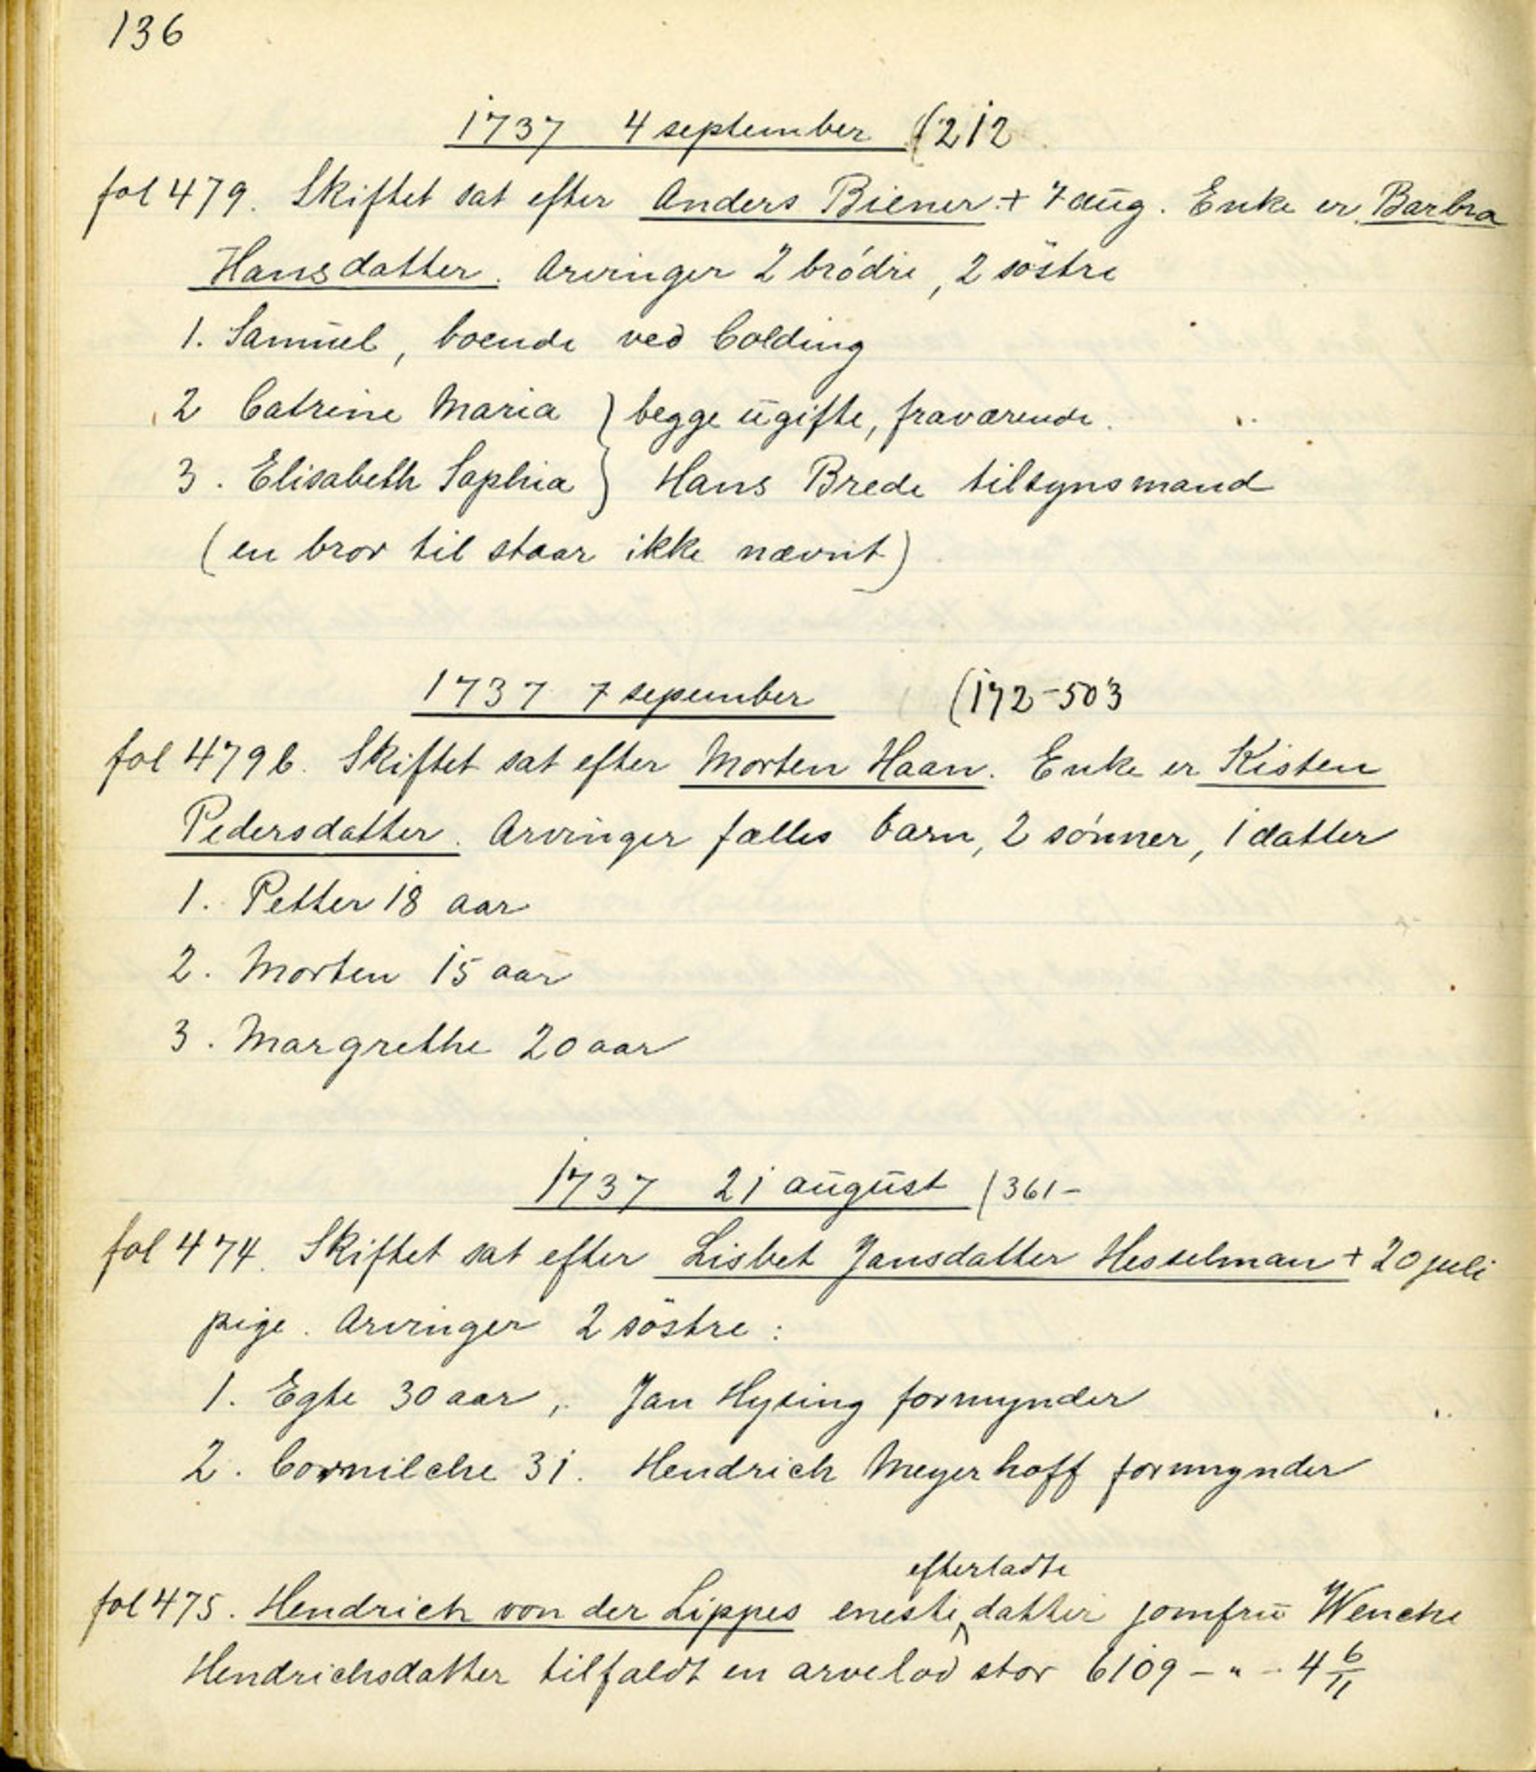 136
1737 4 september (212
fol 479. Skiftet sat efter Anders Biener + 7 aug. Enke er Barbra
Hansdatter. Arvinger 2 brödre, 2 söstre
1. Samuel, boende ved Colding
2 Catrine Maria } begge ugifte, fraværende.
3. Elisabeth Sophia } Hans Brede tilsynsmand
(en bror til staar ikke nævnt)
1737 7 sepember (172-503
fol 479 b. Skiftet sat efter Morten Haan. Enke er Kisten
Pedersdatter. Arvinger fælles barn, 2 sönner, 1 datter
1. Petter 18 aar
2. Morten 15 aar
3. Margrethe 20 aar
1737 21 august (361-
fol 474. Skiftet sat efter Lisbet Jansdatter Hesselman + 20 juli
pige. Arvinger 2 söstre:
1. Egte 30 aar, Jan Hysing formynder
2. Cornilche 31. Hendrich Meyerhoff formynder
efterladte
fol 475. Hendrich von der Lippes eneste datter jomfru Wenche
Hendrichsdatter tilfaldt en arvelod stor 6109 - " - 4 6/11